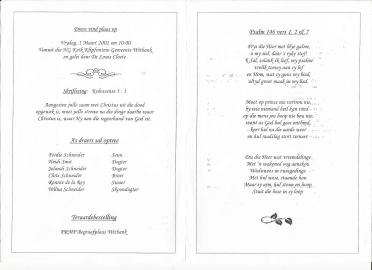 Diens vind plaas op
Vrydag, 1 Maart 2002 om 10:00
Vanuit die NG Kerk Klipfontein Gemeente Witbank
en gelei deur Ds Louis Cloete.
Skriflesing: Kolossense 3 : 1
Aangesien julle saam met Christus uit die dood
opgewek is, moet julle strewe na die dinge daarbo waar
Christus is, waar Hy aan die regterhand van God sit.
As draers sal optree
Ferdie Schneider Seun
Heidi Smit Dogter
Jolandi Schneider Dogter
Chris Schneider Broer
Ronnie de la Rey Swaer
Wilna Schneider Skoondogter
Teraardebestelling
PRMP Begraafplaas Witbank
Psalm 146 vers 1, 2 & 7
Prys die Heer met blye galme,
o my siel, daar 's ryke stof!
'k Sal, solank ek leef, my psalme
vrolik toewy aan sy lof
en Hom, wat sy guns my bied,
altyd groot maak in my lied.
Moet op prinse nie vertrou nie,
by wie niemand heil kan vind
op die mens jou hoop nie bou nie:
want as God hul gees ontbind,
keer hul na die aarde weer
en hul raadslag stort terneer.
Dis die Heer wat vreemdelinge
Met 'n wakend oog aanskou
Weduwees in
Met hul wese, staande hou
Maar sy arm, hul steun en hoop,
Stuit die bose in sy loop